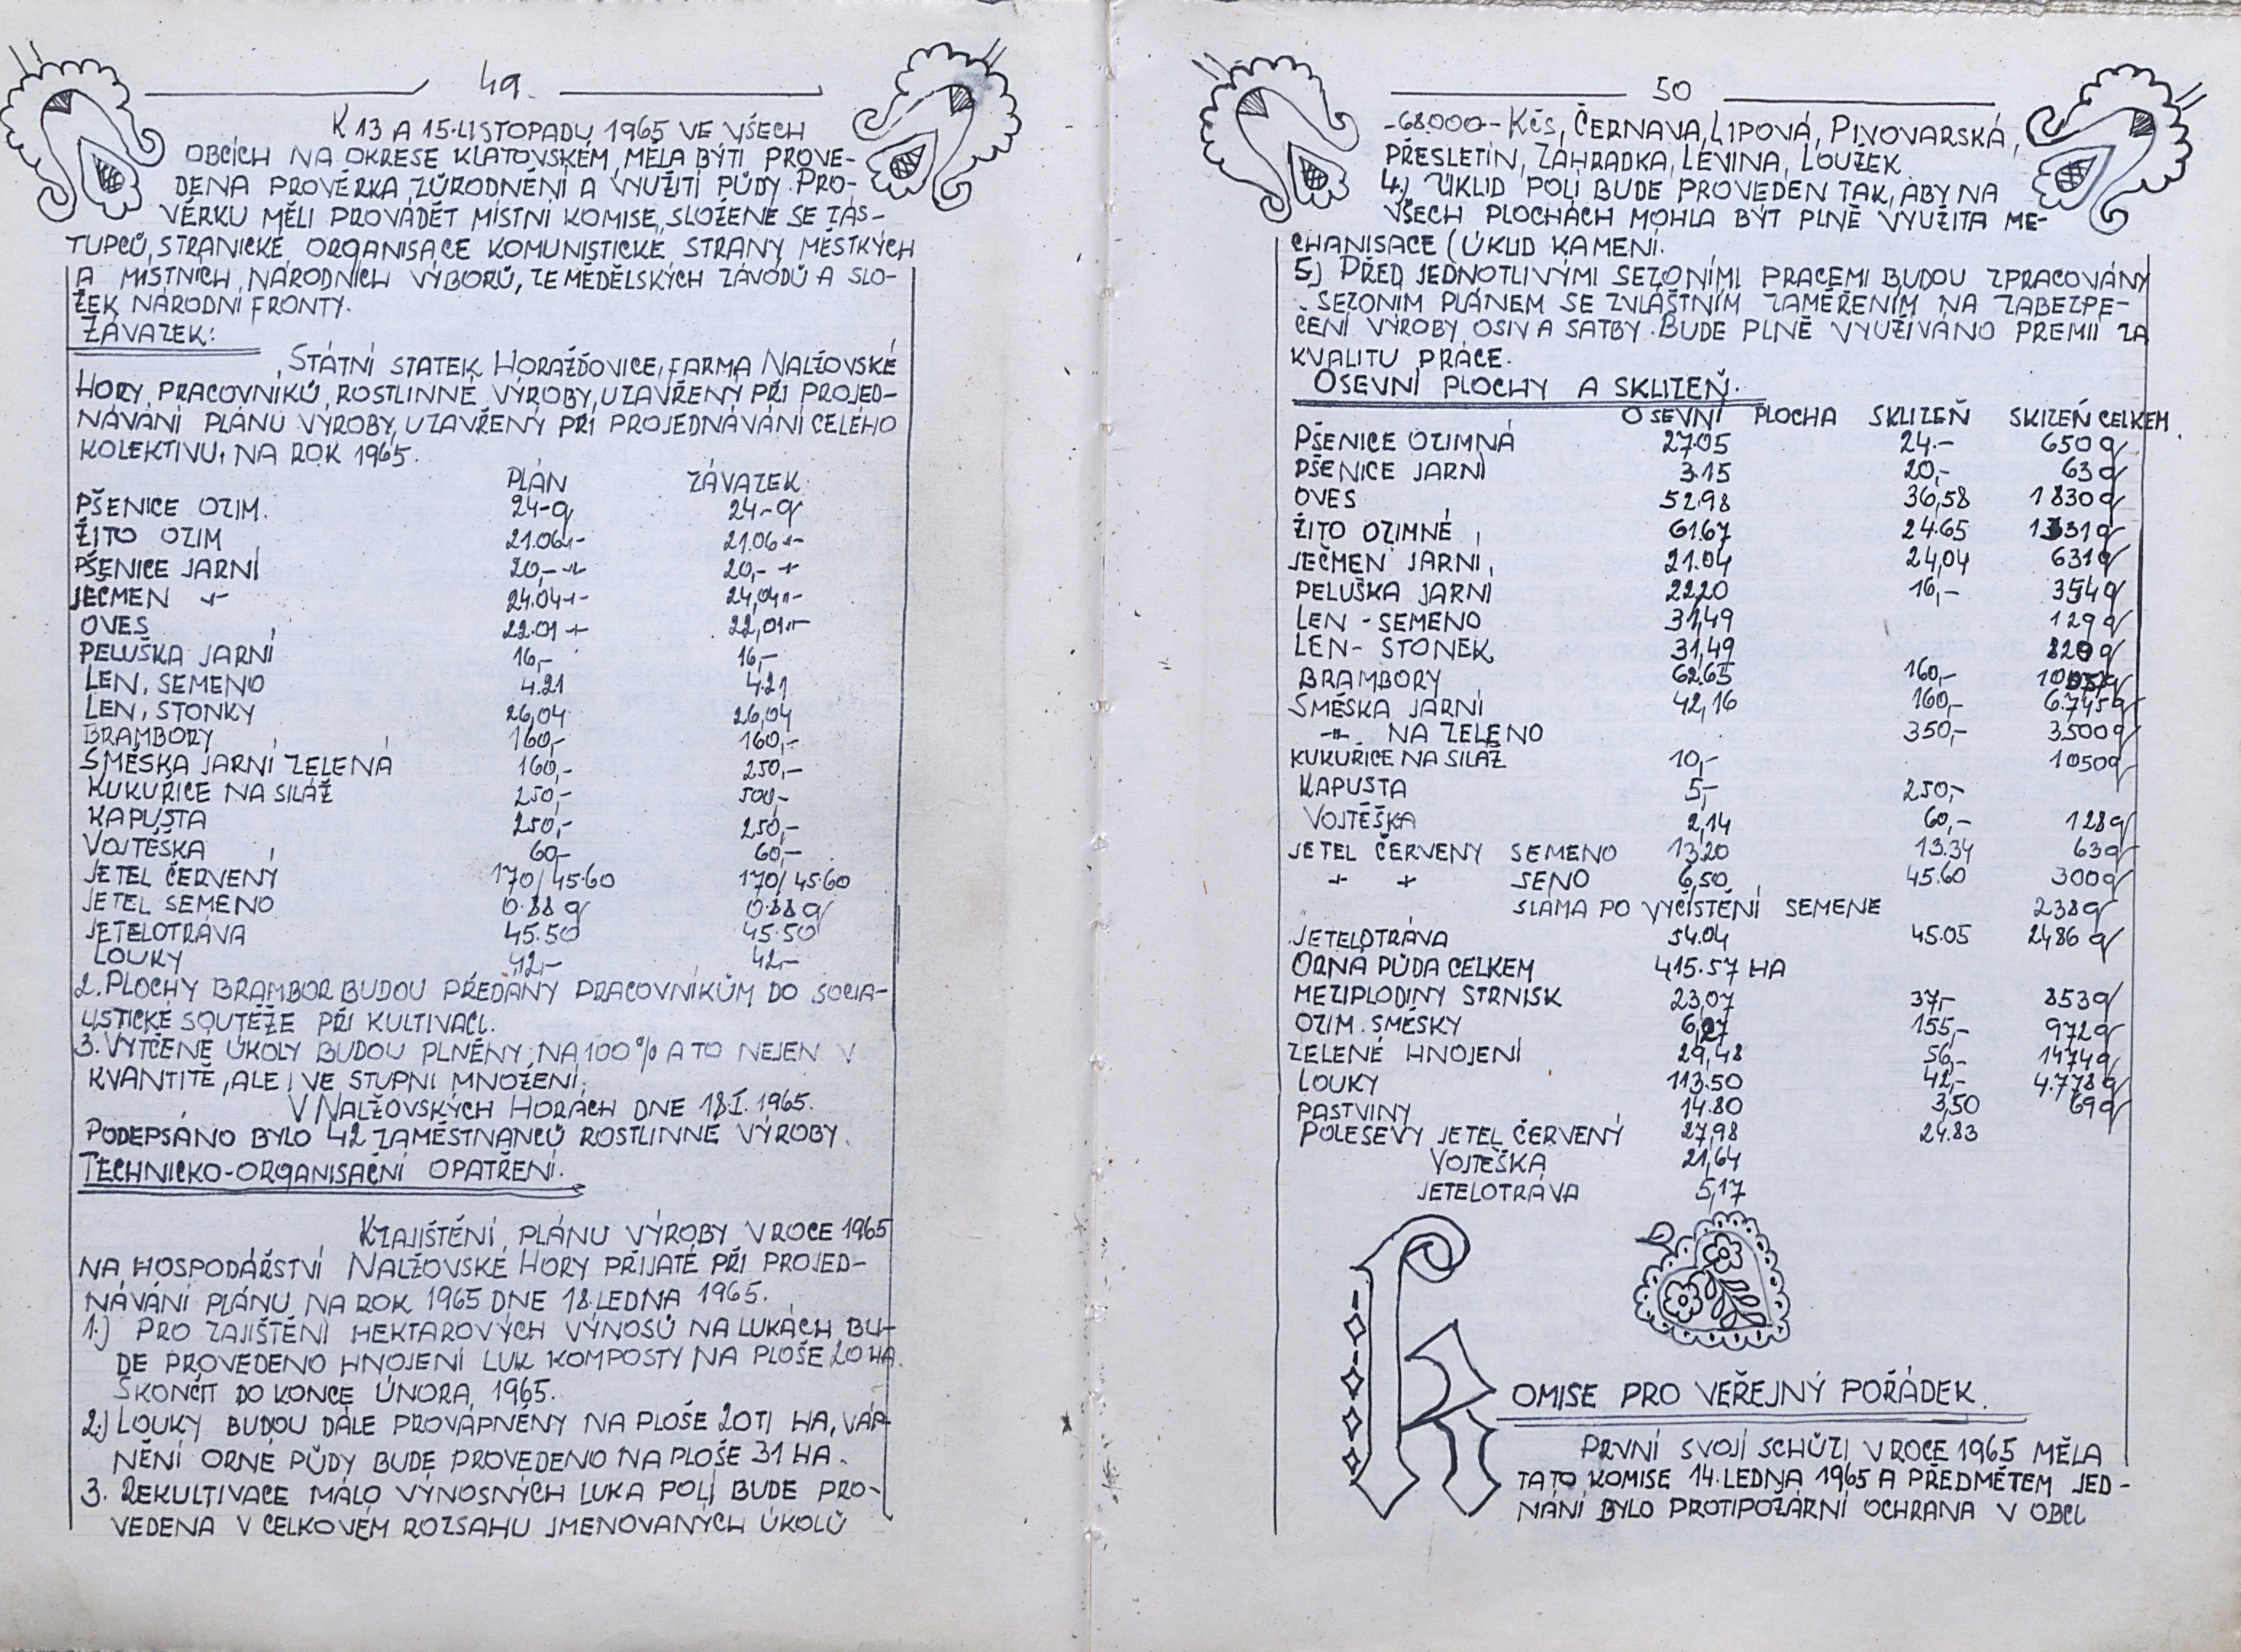 49.
K 13 A 15.LISTOPADU 1965 VE VŠECH
OBCÍCH NA OKRESE KLATOVSKÉM, MĚLA BÝTI PROVE-
DENA PROVĚRKA ZÚRODNĚNÍ A VYUŽITÍ PŮDY. PRO-
VĚRKU MĚLI PROVÁDĚT MÍSTNÍ KOMISE, SLOŽENÉ SE ZÁS-
TUPCŮ, STRANICKÉ ORGANISACE KOMUNISTICKÉ STRANY MĚSTKÝCH
A MÍSTNÍCH NÁRODNÍCH VÝBORŮ, ZEMĚDĚLSKÝCH ZÁVODŮ A SLO-
ŽEK NÁRODNÍ FRONTY.
ZÁVAZEK:
STÁTNÍ STATEK HORAŽĎOVICE, FARMA NALŽOVSKÉ
HORY PRACOVNÍKŮ ROSTLINNÉ VÝROBY, UZAVŘENÝ PŘI PROJED-
NÁVÁNÍ PLÁNU VÝROBY, UZAVŘENÝ PŘI PROJEDNÁVÁNÍ CELÉHO
KOLEKTIVU, NA ROK 1965.
PLÁN ZÁVAZEK
PŠENICE OZIM. 24-q 24-q
ŽITO OZIM 21.06 -"- 21.06 -"-
PŠENICE JARNÍ 20,- -"- 20,- -"-
JEČMEN -"- 24.04 -"- 24,04 -"-
OVES 22.01 -"- 22,01 -"-
PELUŠKA JARNÍ 16,- 16,-
LEN, SEMENO 4.21 4.21
LEN, STONKY 26,04 26,04
BRAMBORY 160,- 160,-
SMĚSKA JARNÍ ZELENÁ 160,- 250,-
KUKUŘICE NA SILÁŽ 250,- 500,-
KAPUSTA 250,- 250,-
VOJTĚŠKA 60,- 60,-
JETEL ČERVENÝ 170/45.60 170/45.60
JETEL SEMENO 0.88 q 0.88 q
JETELOTRÁVA 45.50 45.50
LOUKY 42,- 42,-
2. PLOCHY BRAMBOR BUDOU PŘEDÁNY PRACOVNÍKŮM DO SOCIA-
LISTICKÉ SOUTĚŽE PŘI KULTIVACI.
3. VYTČENÉ ÚKOLY BUDOU PLNĚNY, NA 100% A TO NEJEN V
KVANTITĚ, ALE I VE STUPNI MNOŽENÍ.
V NALŽOVSKÝCH HORÁCH DNE 18.I.1965.
PODEPSÁNO BYLO 42 ZAMĚSTNANCŮ ROSTLINNÉ VÝROBY.
TECHNICKO-ORGANISAČNÍ OPATŘENÍ.
K ZAJIŠTĚNÍ PLÁNU VÝROBY V ROCE 1965
NA HOSPODÁŘSTVÍ NALŽOVSKÉ HORY PŘIJATÉ PŘI PROJED-
NÁVÁNÍ PLÁNU NA ROK 1965 DNE 18.LEDNA 1965.
1.) PRO ZAJIŠTĚNÍ HEKTAROVÝCH VÝNOSŮ NA LUKÁCH BU-
DE PROVEDENO HNOJENÍ LUK KOMPOSTY NA PLOŠE 20 HA.
SKONČIT DO KONCE ÚNORA 1965.
2.) LOUKY BUDOU DÁLE PROVÁPNĚNY NA PLOŠE 20TI HA, VÁP-
NĚNÍ ORNÉ PŮDY BUDE PROVEDENO NA PLOŠE 31 HA.
3. REKULTIVACE MÁLO VÝNOSNÝCH LUK A POLÍ BUDE PRO-
VEDENA V CELKOVÉM ROZSAHU JMENOVANÝCH ÚKOLŮ
50
-68.000- Kčs, ČERNAVA, LIPOVÁ, PIVOVARSKÁ,
PŘESLETÍN, ZÁHRADKA, LEVINA, LOUŽEK
4.) ÚKLID POLÍ BUDE PROVEDEN TAK, ABY NA
VŠECH PLOCHÁCH MOHLA BÝT PLNĚ VYUŽITA ME-
CHANISACE (ÚKLID KAMENÍ.
5.) PŘED JEDNOTLIVÝMI SEZONÍMI PRACEMI BUDOU ZPRACOVÁNY
SEZONÍM PLÁNEM SE ZVLÁŠTNÍM ZAMĚŘENÍM NA ZABEZPE-
ČENÍ VÝROBY OSIV A SATBY. BUDE PLNĚ VYUŽÍVÁNO PREMIÍ ZA
KVALITU PRÁCE.
OSEVNÍ PLOCHY A SKLIZEŇ.
OSEVNÍ PLOCHA SKLIZEŇ SKIZEŇ CELKEM
PŠENICE OZIMNÁ 27.05 24.- 650 q
PŠENICE JARNÍ 3.15 20,- 63 q
OVES 52.98 36,58 1830 q
ŽITO OZIMNÉ 61.67 24.65 1331 q
JEČMEN JARNÍ 21.04 24,04 631 q
PELUŠKA JARNÍ 22.20 16,- 354 q
LEN - SEMENO 31,49 129 q
LEN - STONEK 31,49 820 q
BRAMBORY 62.65 160,-
SMĚSKA JARNÍ 42,16 160,- 6.745 q
-"- NA ZELENO 350,- 3.500 q
KUKUŘICE NA SILÁŽ 10,- 1050 q
KAPUSTA 5,- 250,-
VOJTĚŠKA 2,14 60,- 128 q
JETEL ČERVENÝ SEMENO 13.20 13.34 63 q
-"- -"- SENO 6,50 45.60 300 q
SLÁMA PO VYČIŠTĚNÍ SEMENE 238 q
JETELOTRÁVA 54.04 45.05 2486 q
ORNÁ PŮDA CELKEM 415.57 HA
MEZIPLODINY STRNISK 23,07 37,- 853 q
OZIM. SMĚSKY 6,27 155,- 972 q
ZELENÉ HNOJENÍ 29,48 56,- 1474 q
LOUKY 113.50 42,- 4.778 q
PASTVINY 14.80 3,50 69 q
POLESEVY JETEL ČERVENÝ 27,98 24.83
VOJTĚŠKA 21,64
JETELOTRÁVA 5,17
KOMISE PRO VEŘEJNÝ POŘÁDEK.
PRVNÍ SVOJÍ SCHŮZI V ROCE 1965 MĚLA
TATO KOMISE 14.LEDNA 1965 A PŘEDMĚTEM JED-
NÁNÍ BYLO PROTIPOŽÁRNÍ OCHRANA V OBCI